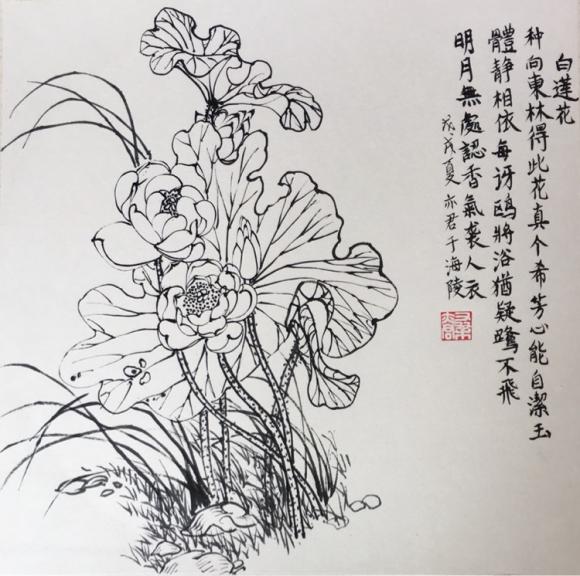 白蓮花
种向東林得此花真个希芳心能自潔玉
體静相依每讶鸥將浴猶疑鷺不飛
明月無處認香氣袭人衣
戊戌夏亦君于海陵